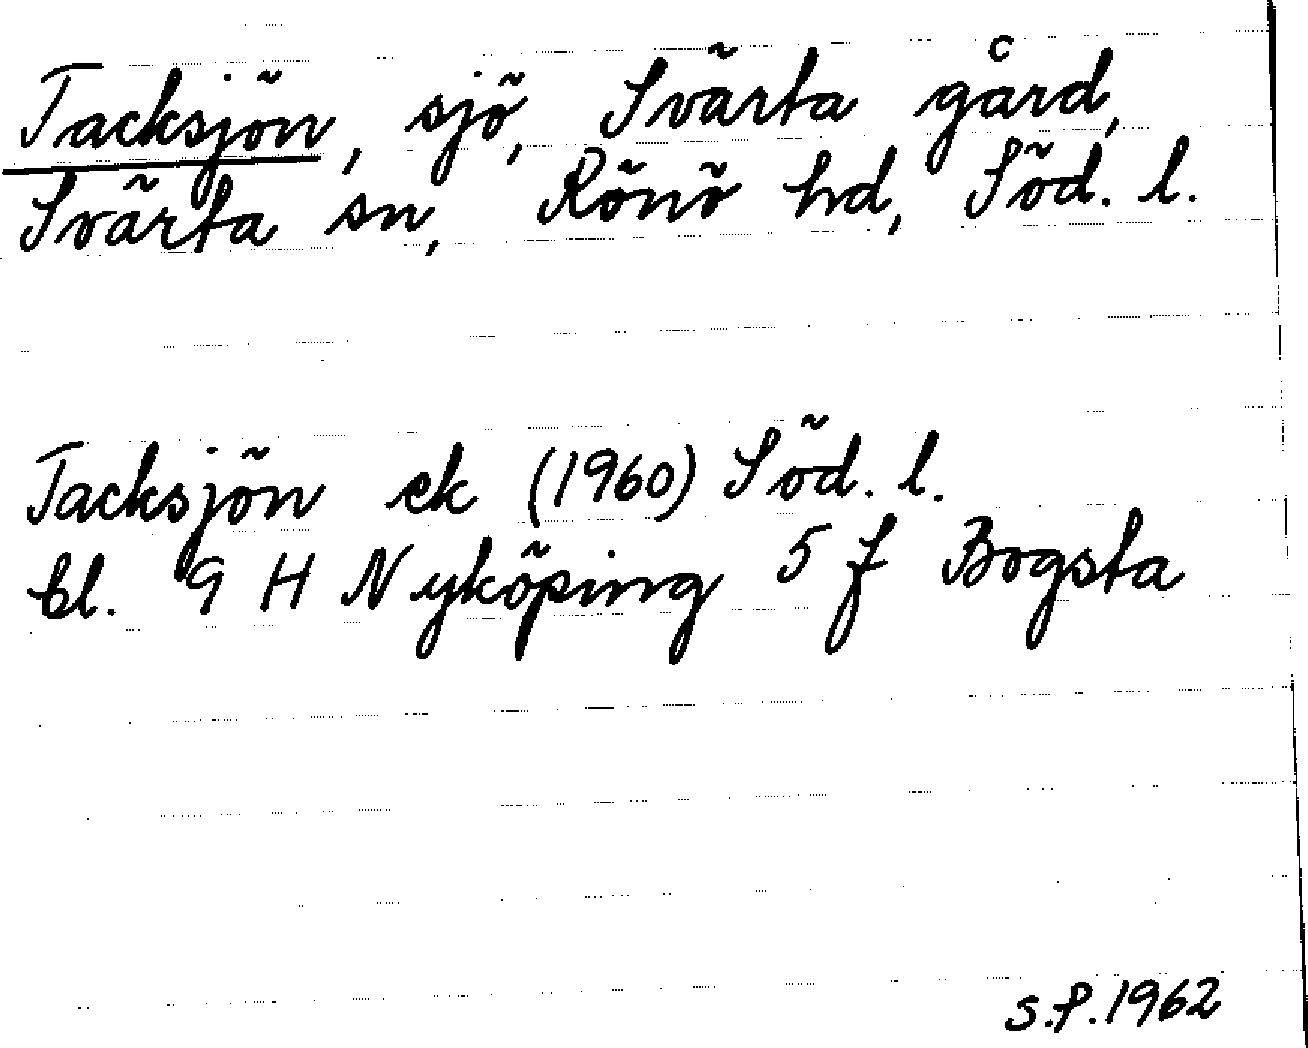 Tacksjön, sjö, Svärta gård,
Svärta sn, Rönö hd, Söd. l.
Tacksjön ek (1960) Söd. l.
bl. 9 H Nyköping 5 f Bogsta
S.P.1962